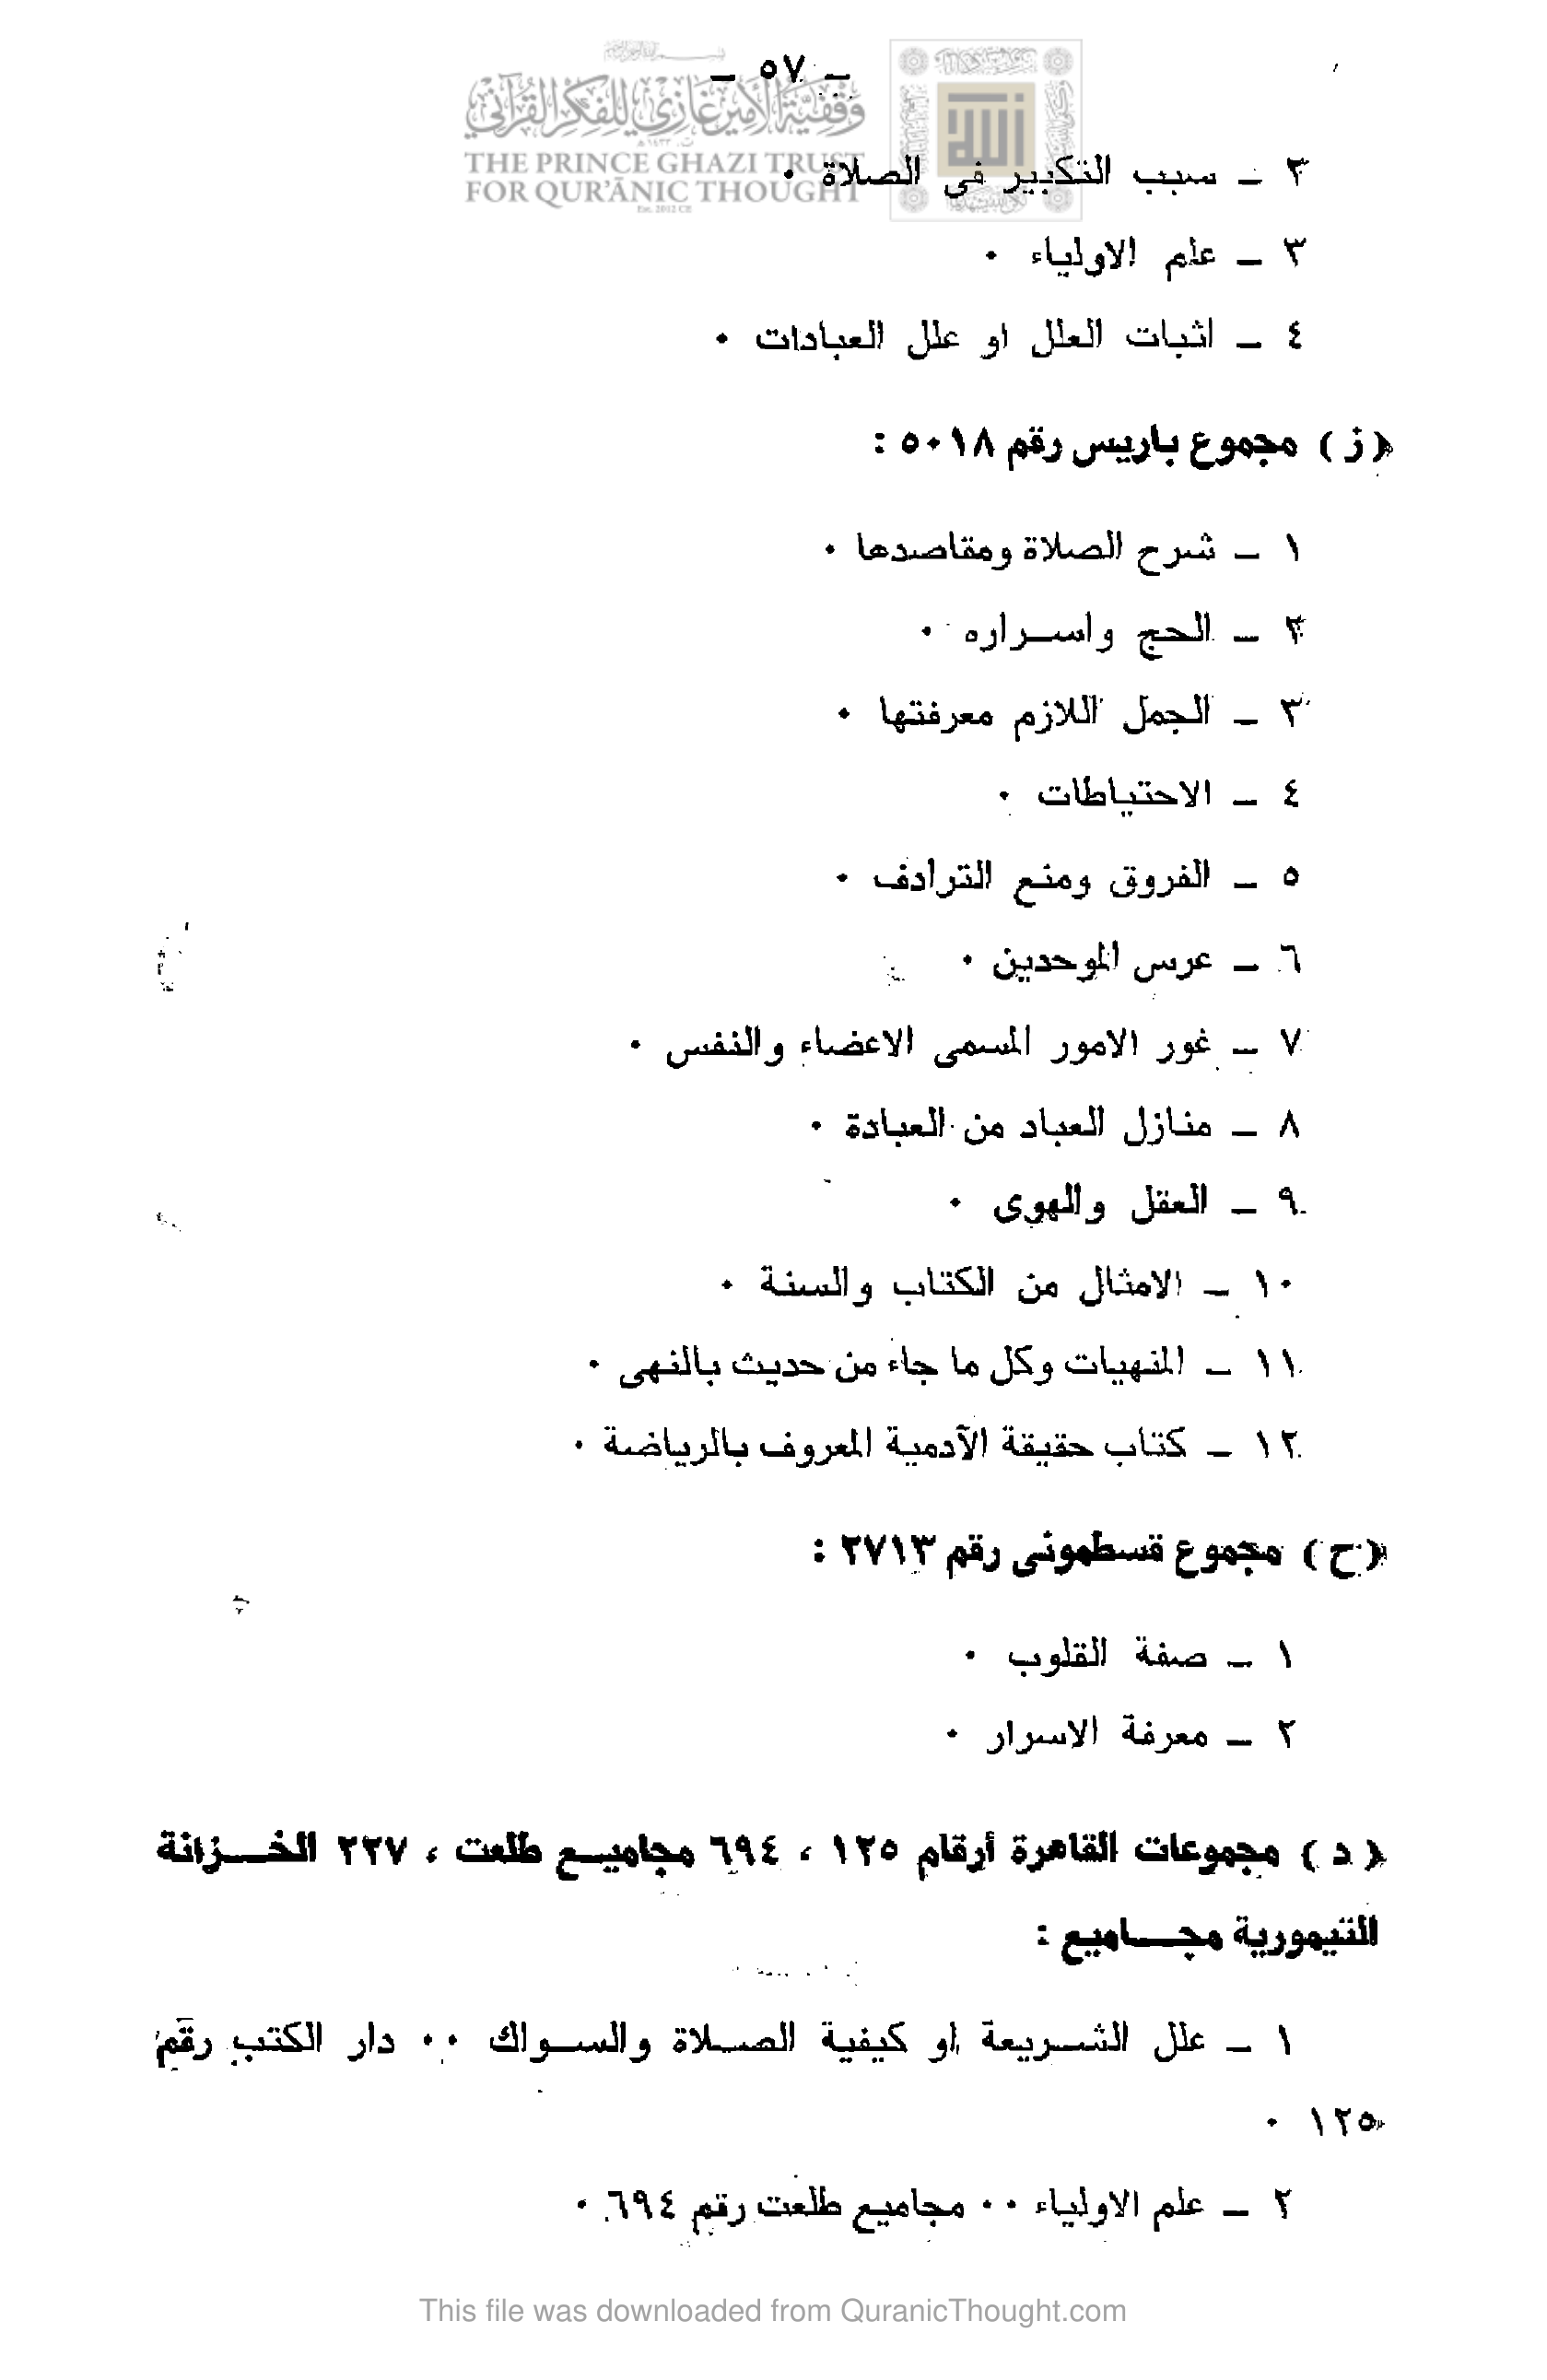 – ٥٧ –
وقفية الأمير غازي للفكر القرآني
THE PRINCE GHAZI TRUST
FOR QUR’ĀNIC THOUGHT
Est. 2012 CE
٢ – سبب التكبير فى الصلاة ٠
٣ – علم الاولياء ٠
٤ – اثبات العلل او علل العبادات ٠
( ز ) مجموع باريس رقم ٥٠١٨ :
١ – شرح الصلاة ومقاصدها ٠
٢ – الحج واسـراره ٠
٣ – الجمل اللازم معرفتها ٠
٤ – الاحتياطات ٠
٥ – الفروق ومنع الترادف ٠
٦ – عرس الموحدين ٠
٧ – غور الامور المسمى الاعضاء والنفس ٠
٨ – منازل العباد من العبادة ٠
٩ – العقل والهوى ٠
١٠ – الامثال من الكتاب والسنة ٠
١١ – المنهيات وكل ما جاء من حديث بالنهى ٠
١٢ – كتاب حقيقة الآدمية المعروف بالرياضة ٠
( ح ) مجموع قسطمونى رقم ٢٧١٣ :
١ – صفة القلوب ٠
٢ – معرفة الاسرار ٠
( د ) مجموعات القاهرة أرقام ١٢٥ ، ٦٩٤ مجاميـع طلعت ، ٢٢٧ الخـــزانة
التيمورية مجـــاميع :
١ – علل الشـريعة او كيفية الصـلاة والسـواك ٠٠ دار الكتب رقم
١٢٥ ٠
٢ – علم الاولياء ٠٠ مجاميع طلعت رقم ٦٩٤ ٠
This file was downloaded from QuranicThought.com